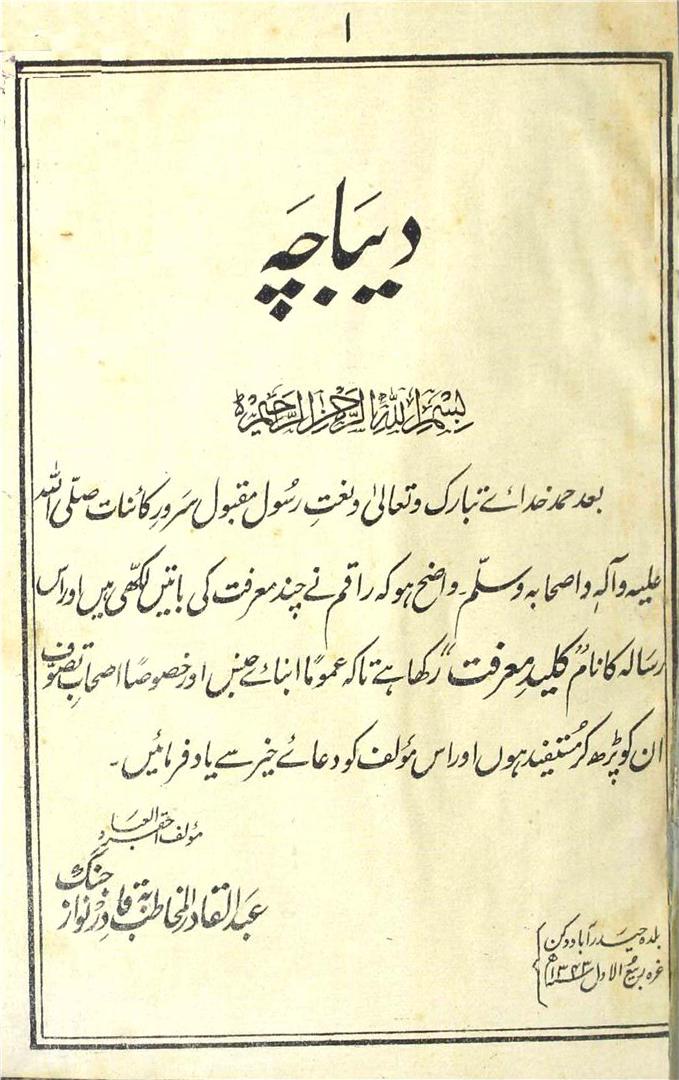 ۱
دیباچہ
بسم اللہ الرحمن الرحیم
بعد حمد خدائے تبارک و تعالیٰ و نعتِ رسُول مقبول سرورِ کائنات صلّی اللہ
علیہ و آلہٖ و اصحابہ وسلّم۔ واضح ہو کہ راقم نے چند معرفت کی باتیں لکھّی ہیں اور اس
رسالہ کا نام ”کلیدِ معرفت“ رکھا ہے تاکہ عموماً ابنائے جنس اور خصوصاً اصحابِ تصوّف
ان کو پڑھ کر مُستفید ہوں اور اس مؤلف کو دعائے خیر سے یاد فرمائیں۔
مؤلف احقر العباد
عبد القادر المخاطب بہ قادر نواز جنگ
بلدہ حیدرآباد دکن
غرہ ربیع الاول ۱۳۴۳ھ